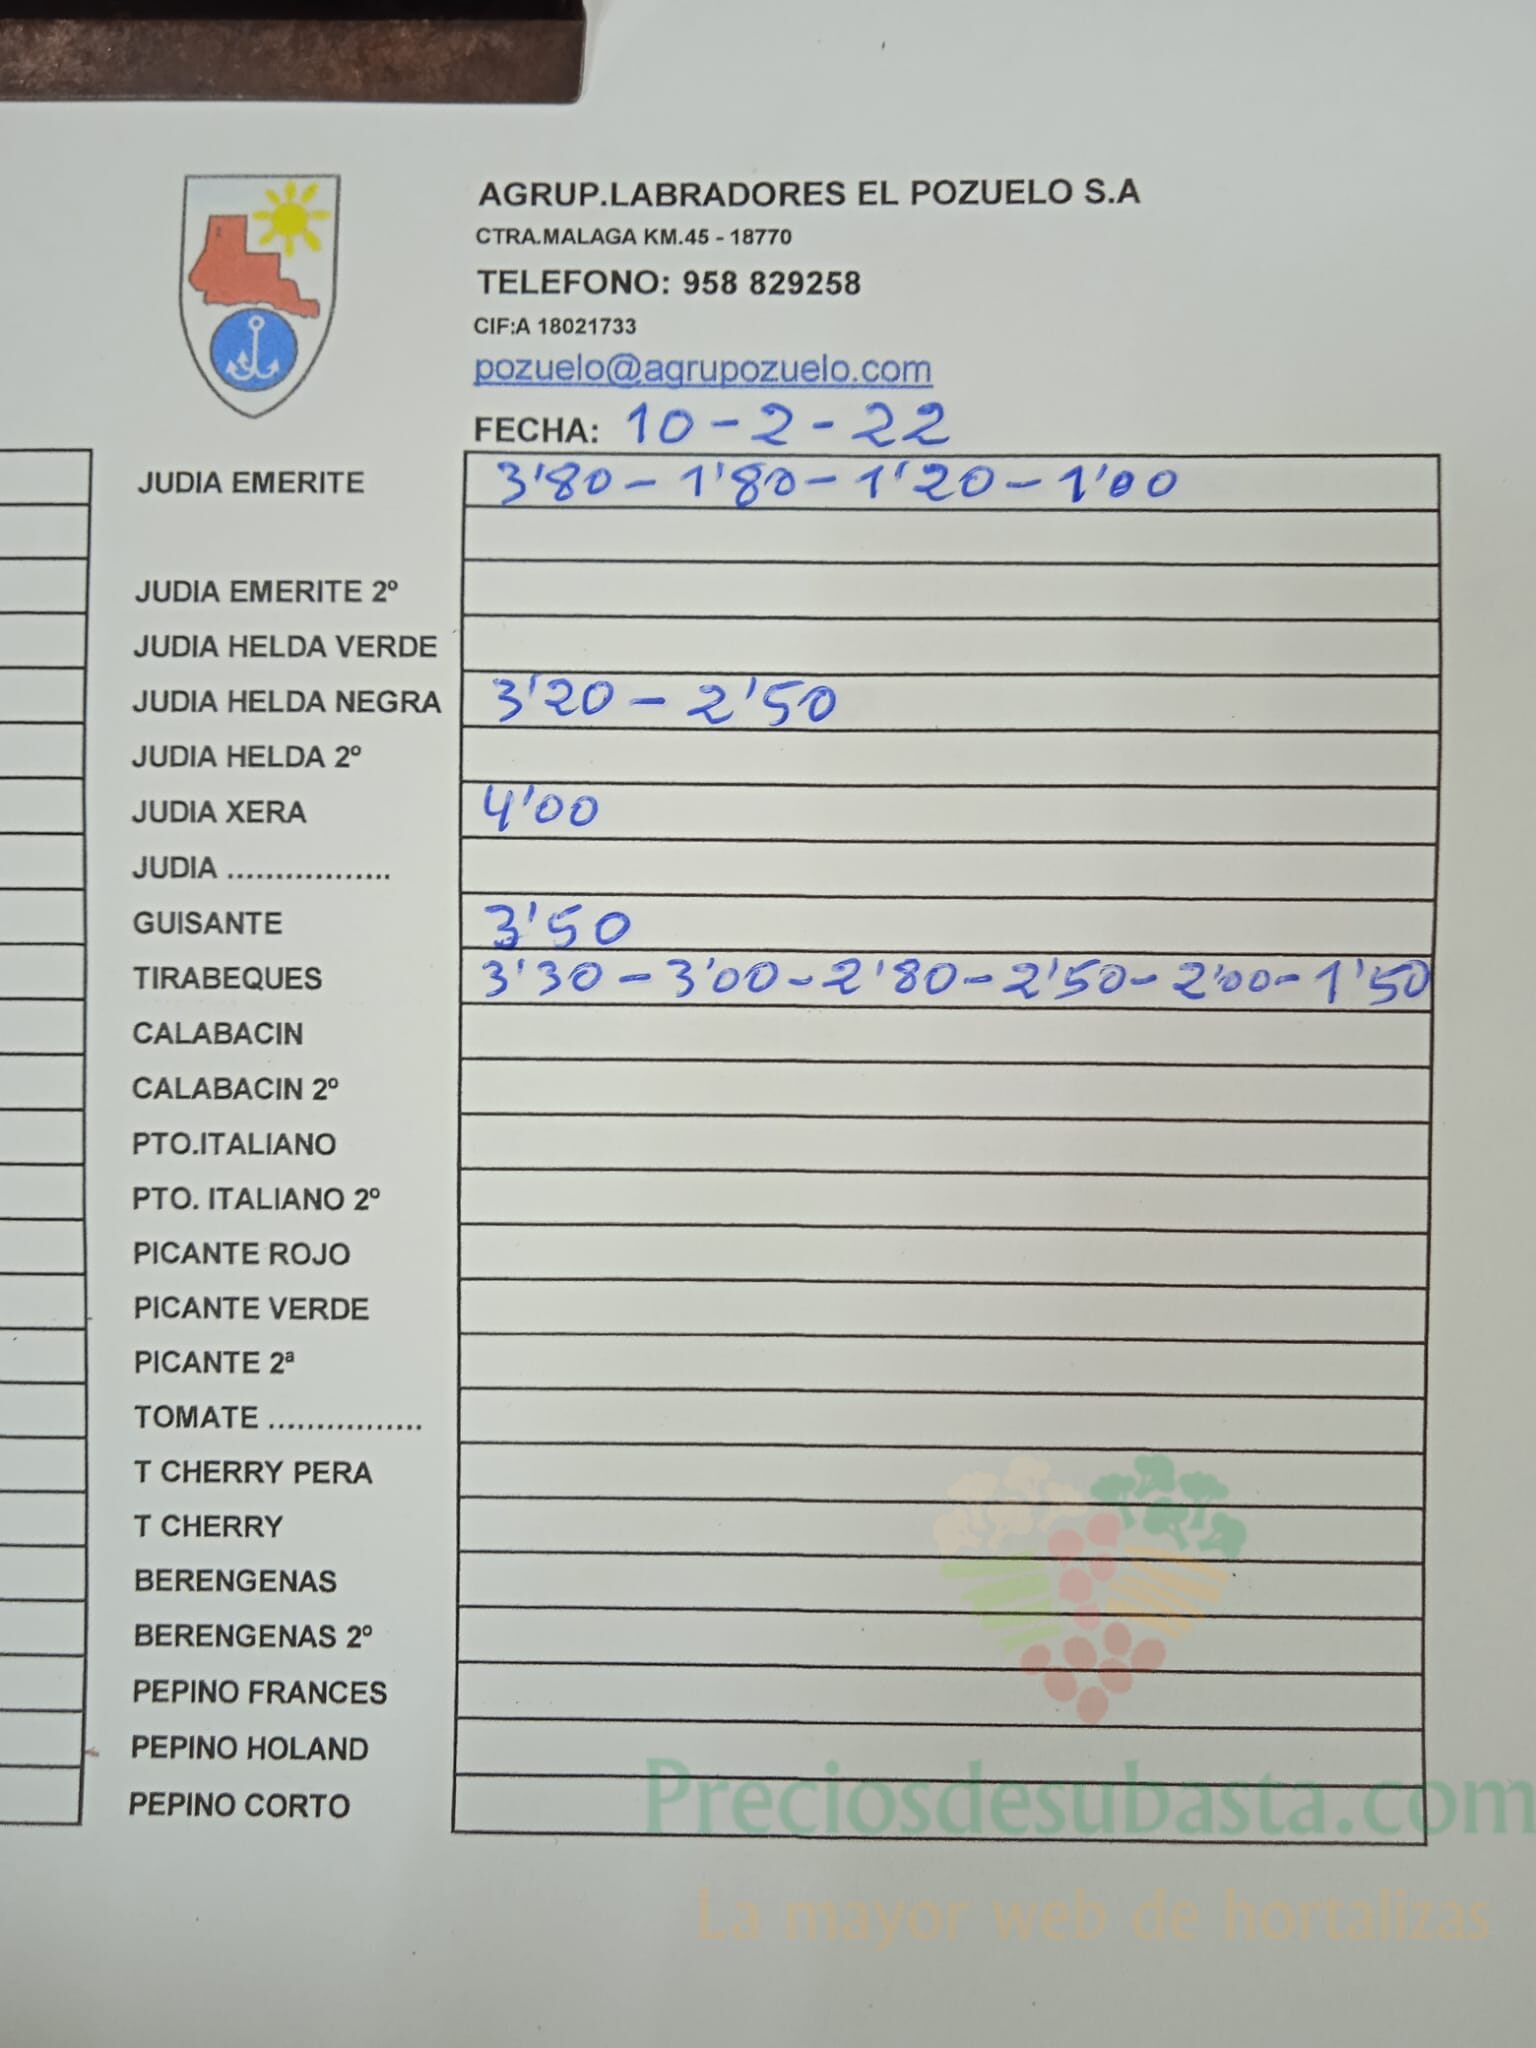 AGRUP.LABRADORES EL POZUELO S.A
CTRA.MALAGA KM.45 - 18770
TELEFONO: 958 829258
CIF:A 18021733
pozuelo@agrupozuelo.com
FECHA: 10-2-22
JUDIA EMERITE 3'80-1'80-1'20-1'00
JUDIA EMERITE 2º
JUDIA HELDA VERDE
JUDIA HELDA NEGRA 3'20-2'50
JUDIA HELDA 2º
JUDIA XERA 4'00
JUDIA .................
GUISANTE 3'50
TIRABEQUES 3'30-3'00-2'80-2'50-2'00-1'50
CALABACIN
CALABACIN 2º
PTO.ITALIANO
PTO. ITALIANO 2º
PICANTE ROJO
PICANTE VERDE
PICANTE 2ª
TOMATE ................
T CHERRY PERA
T CHERRY
BERENGENAS
BERENGENAS 2º
PEPINO FRANCES
PEPINO HOLAND
PEPINO CORTO
Preciosdesubasta.com
La mayor web de hortalizas